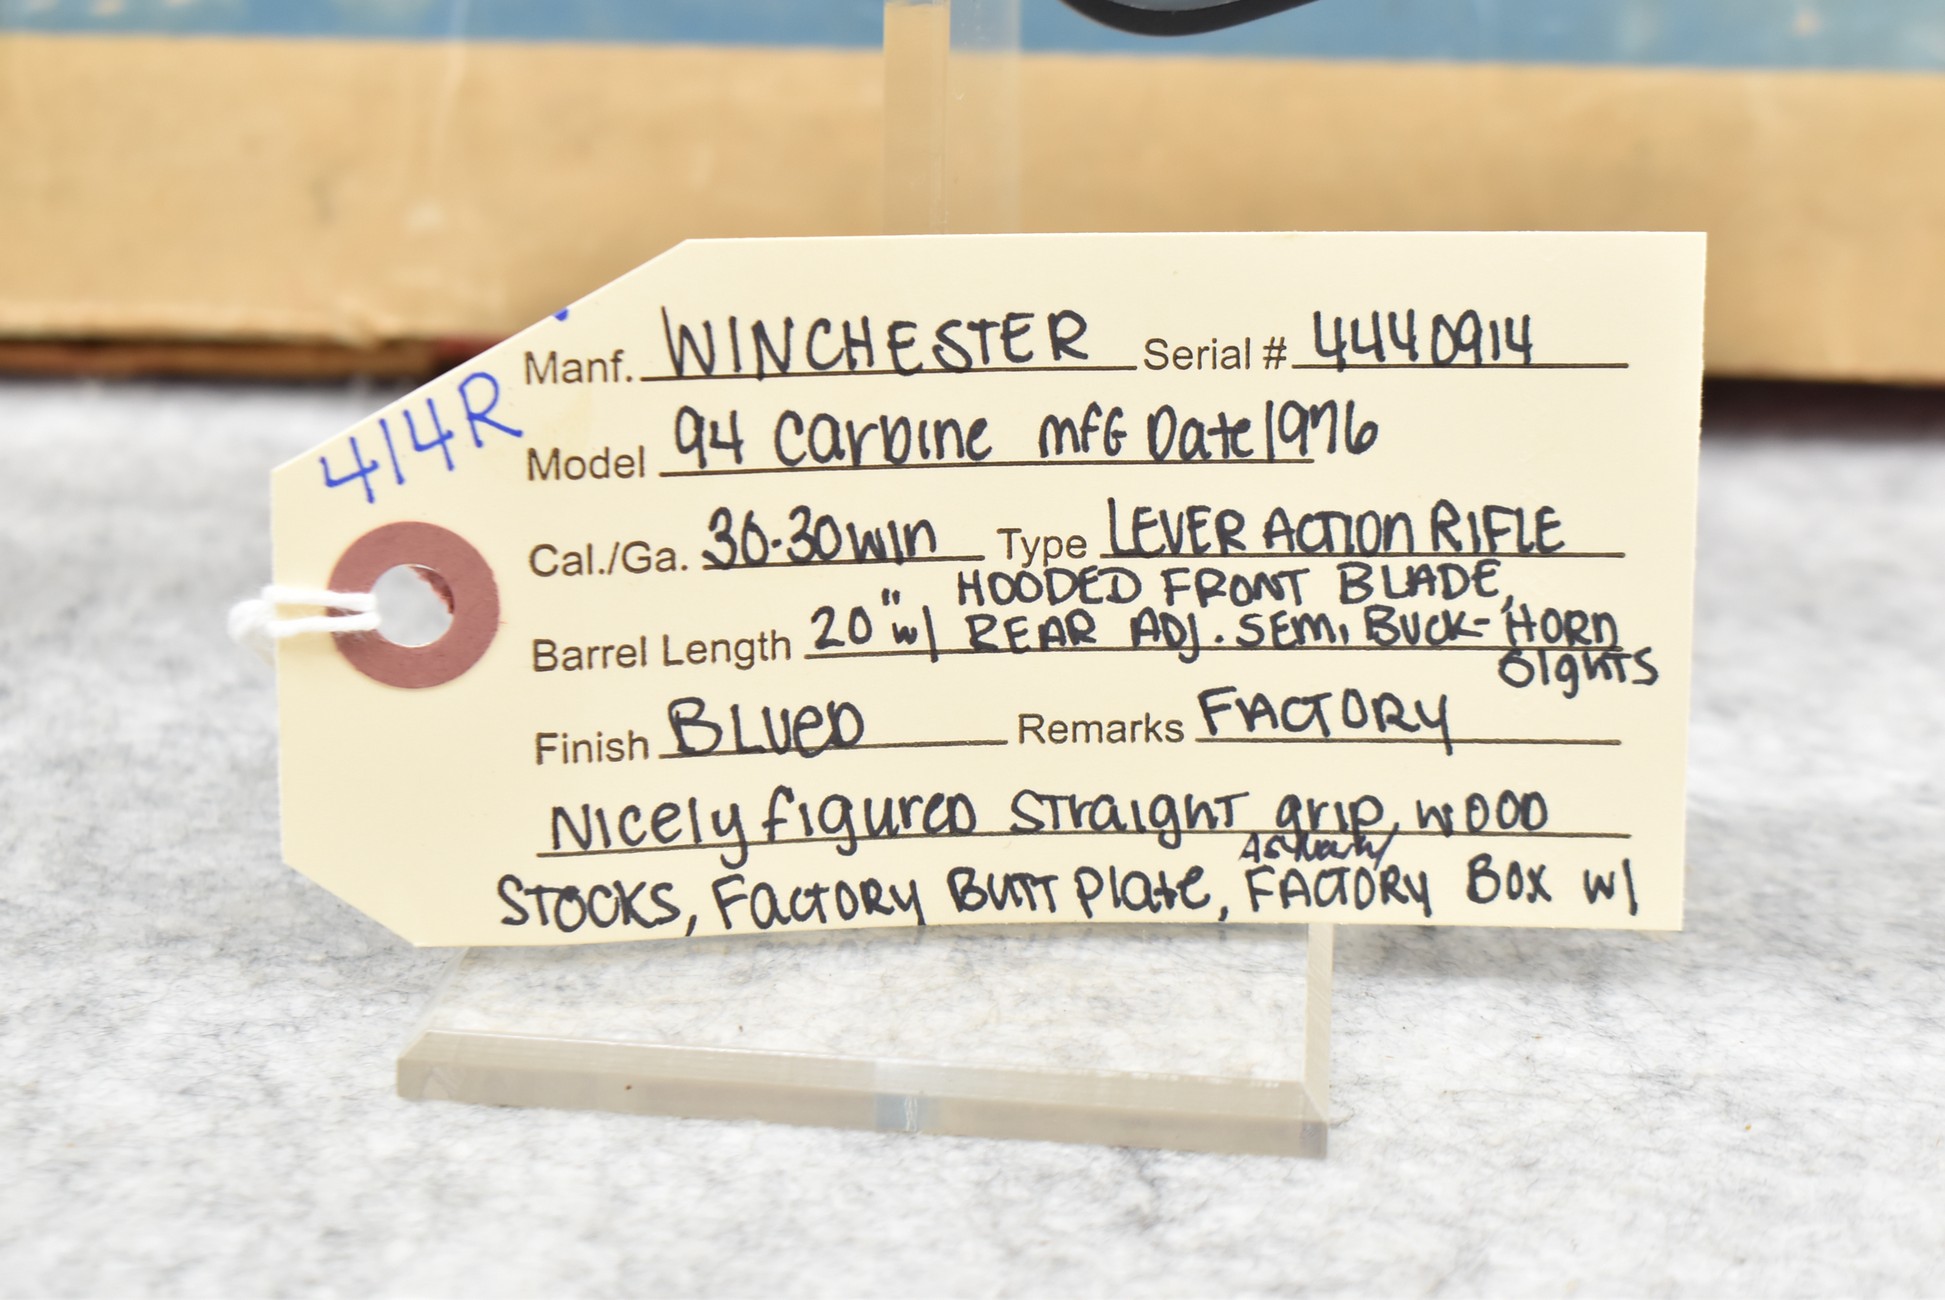 414R
Manf. WINCHESTER Serial # 4440914
Model 94 Carbine MFG Date 1976
Cal./Ga. 30-30 WIN Type LEVER ACTION RIFLE
HOODED FRONT BLADE,
Barrel Length 20" w/ REAR ADJ. SEMI BUCK-HORN
SIGHTS
Finish BLUED Remarks FACTORY
Nicely figured straight grip, wood
STOCKS, Factory Butt Plate, FACTORY Box w/